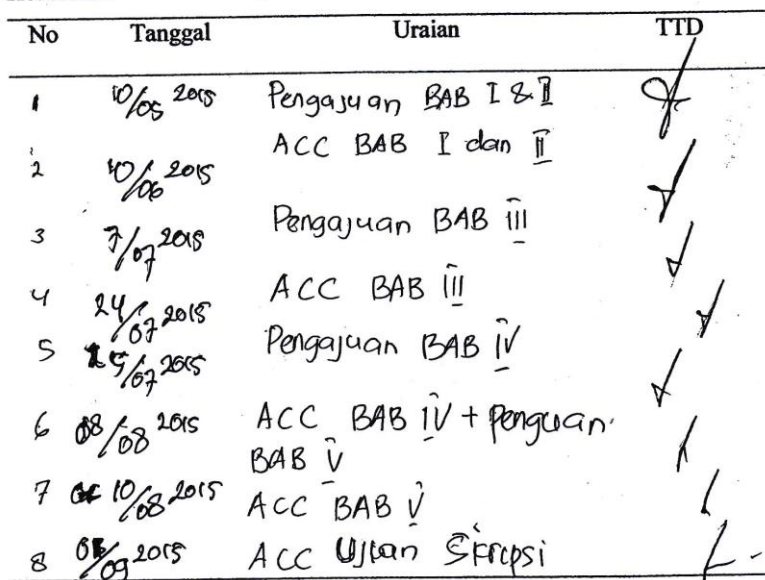 No Tanggal Uraian TTD
1 10/05 2015 Pengajuan BAB I & II
2 10/06 2015 ACC BAB I dan II
3 7/07 2015 Pengajuan BAB III
4 24/07 2015 ACC BAB III
5 /07 2015 Pengajuan BAB IV
6 08/08 2015 ACC BAB IV + Penguan
BAB V
7 10/08 2015 ACC BAB V
8 /09 2015 ACC Ujian Skripsi